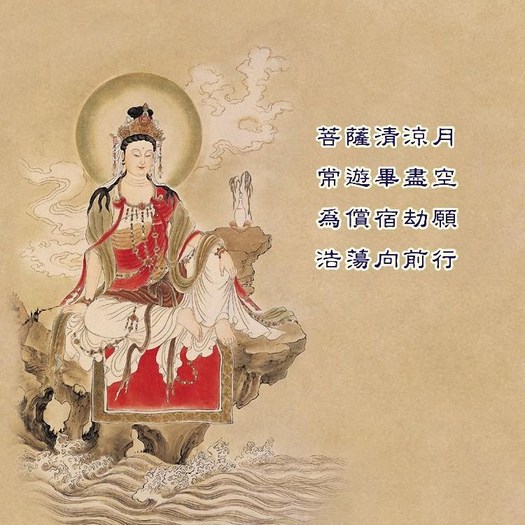 菩薩清涼月
常遊畢盡空
爲償宿劫願
浩蕩向前行